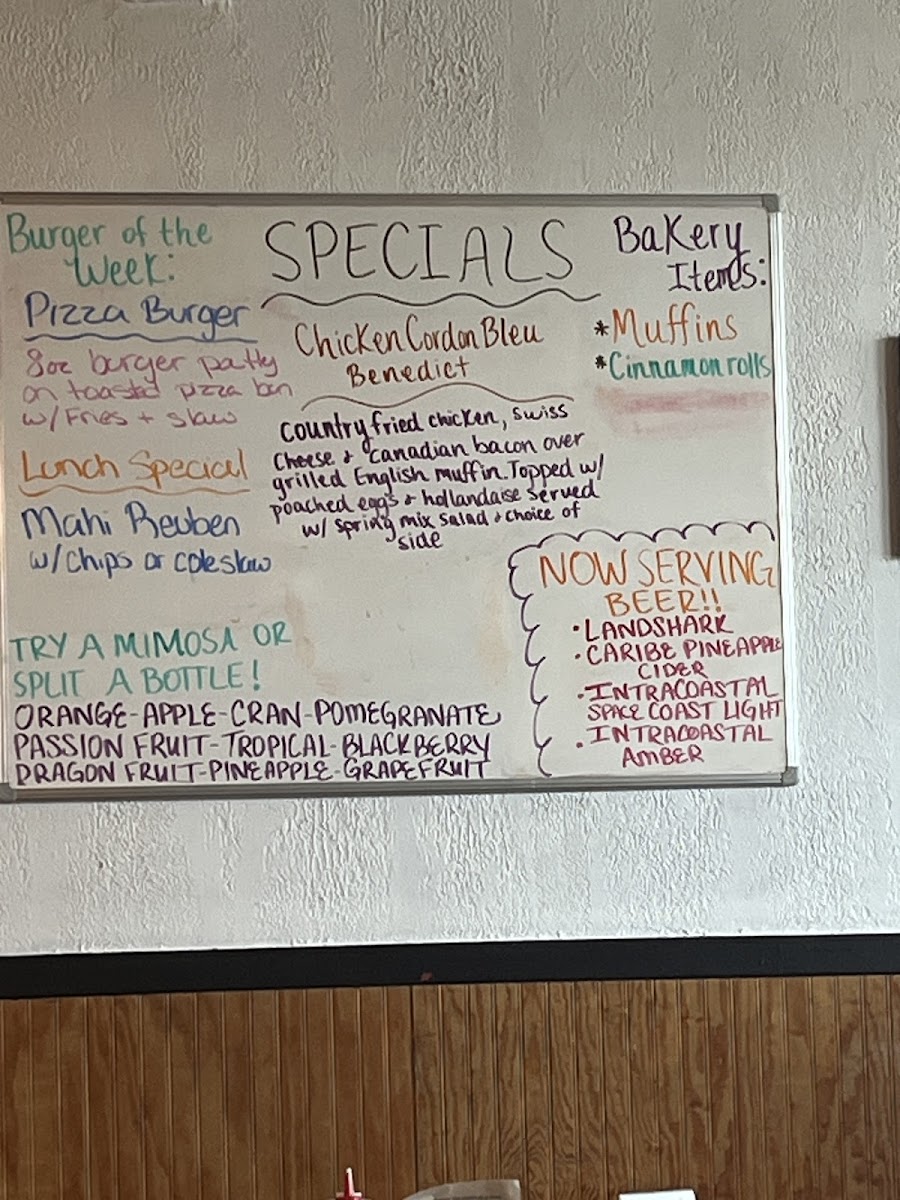 Burger of the
Week:
Pizza Burger
8oz burger patty
on toasted pizza bun
w/ Fries + slaw
Lunch Special
Mahi Reuben
w/ Chips or coleslaw
SPECIALS
Chicken Cordon Bleu
Benedict
Country fried chicken, swiss
cheese & canadian bacon over
grilled English muffin. Topped w/
poached eggs & hollandaise served
w/ spring mix salad & choice of
side
Bakery
Items:
*Muffins
*Cinnamon rolls
TRY A MIMOSA OR
SPLIT A BOTTLE!
ORANGE-APPLE-CRAN-POMEGRANATE
PASSION FRUIT-TROPICAL-BLACKBERRY
DRAGON FRUIT-PINEAPPLE-GRAPEFRUIT
NOW SERVING
BEER!!
• LANDSHARK
• CARIBE PINEAPPLE
CIDER
• INTRACOASTAL
SPACE COAST LIGHT
• INTRACOASTAL
AMBER